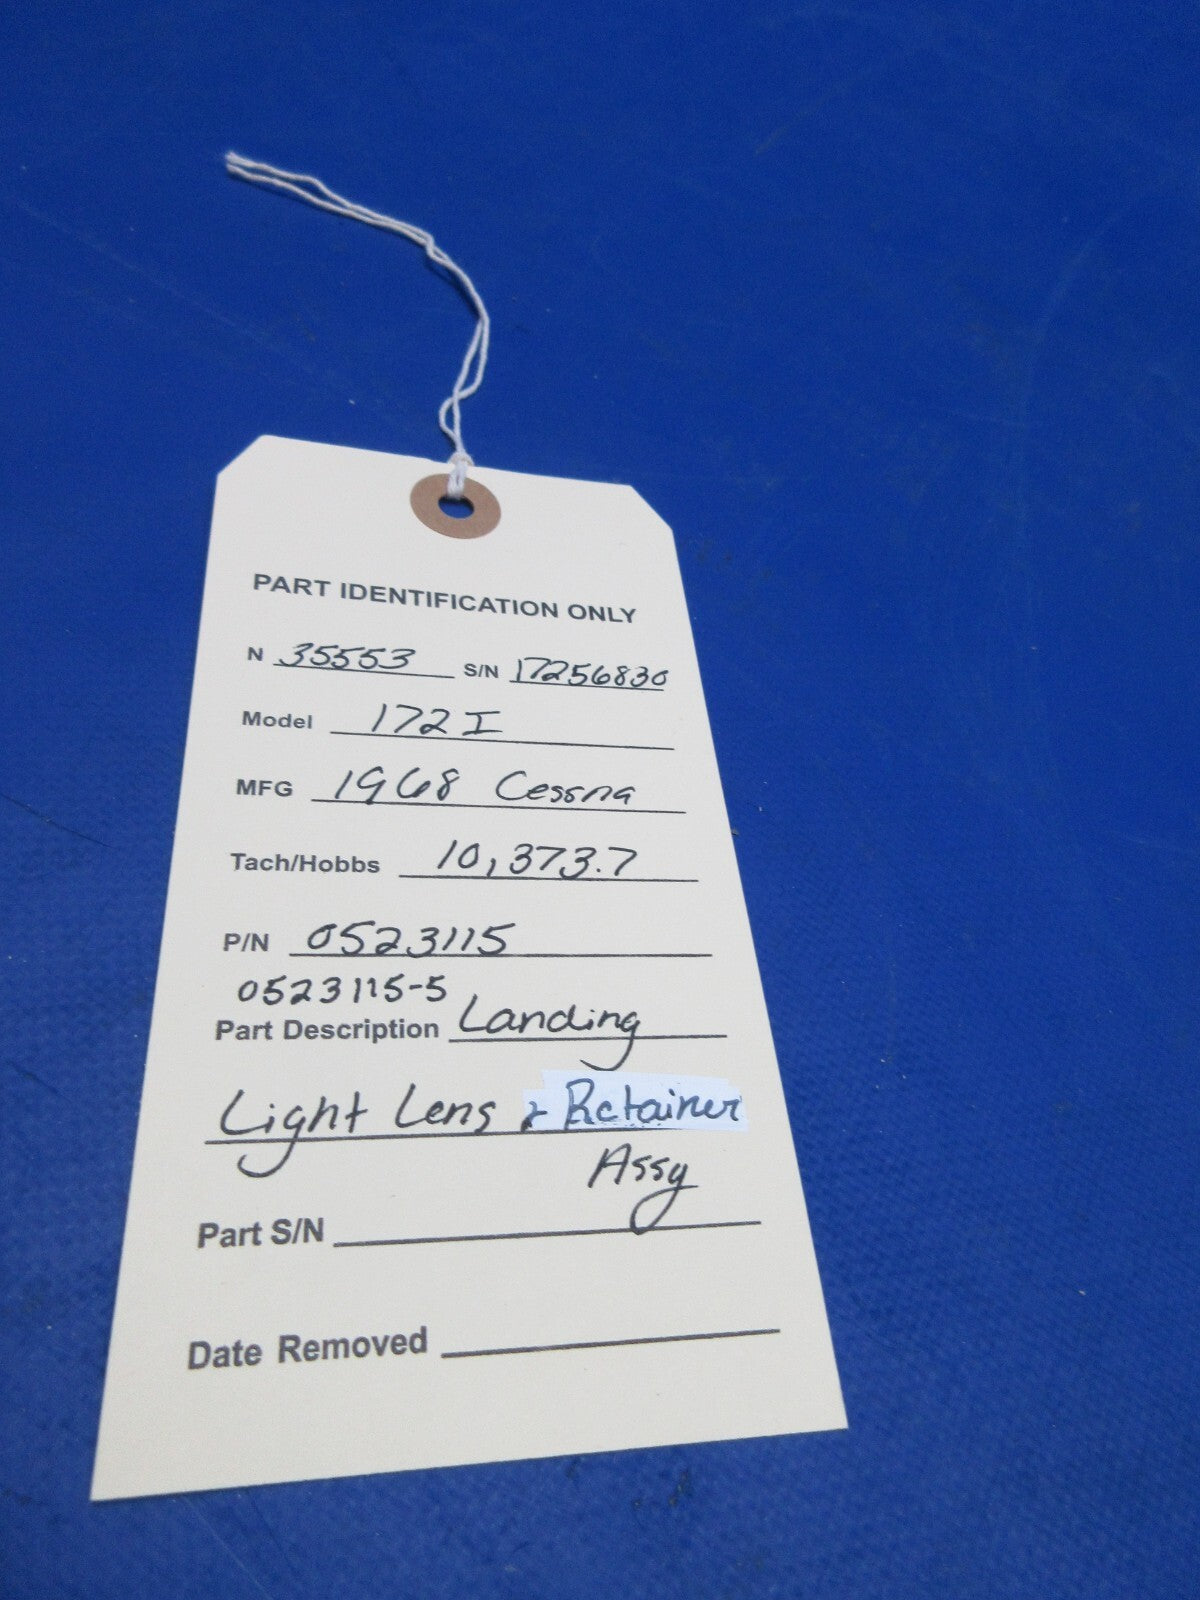 PART IDENTIFICATION ONLY
N 35553 S/N 17256830
Model 172 I
MFG 1968 Cessna
Tach/Hobbs 10,373.7
P/N 0523115
0523115-5
Part Description Landing
Light Lens & Retainer
Assy
Part S/N
Date Removed